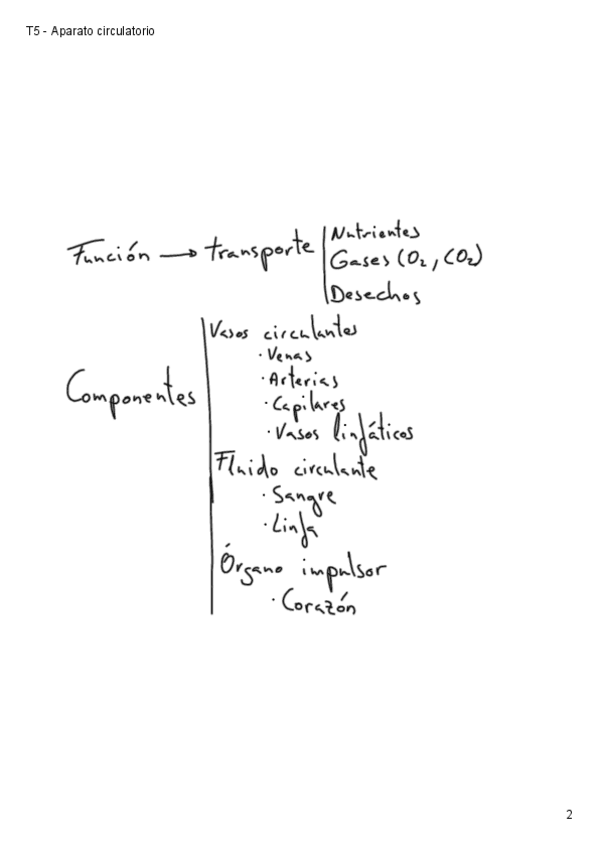 T5 - Aparato circulatorio
Función → transporte
Nutrientes
Gases (O₂, CO₂)
Desechos
Componentes
Vasos circulantes
· Venas
· Arterias
· Capilares
· Vasos linfáticos
Fluido circulante
· Sangre
· Linfa
Órgano impulsor
· Corazón
2